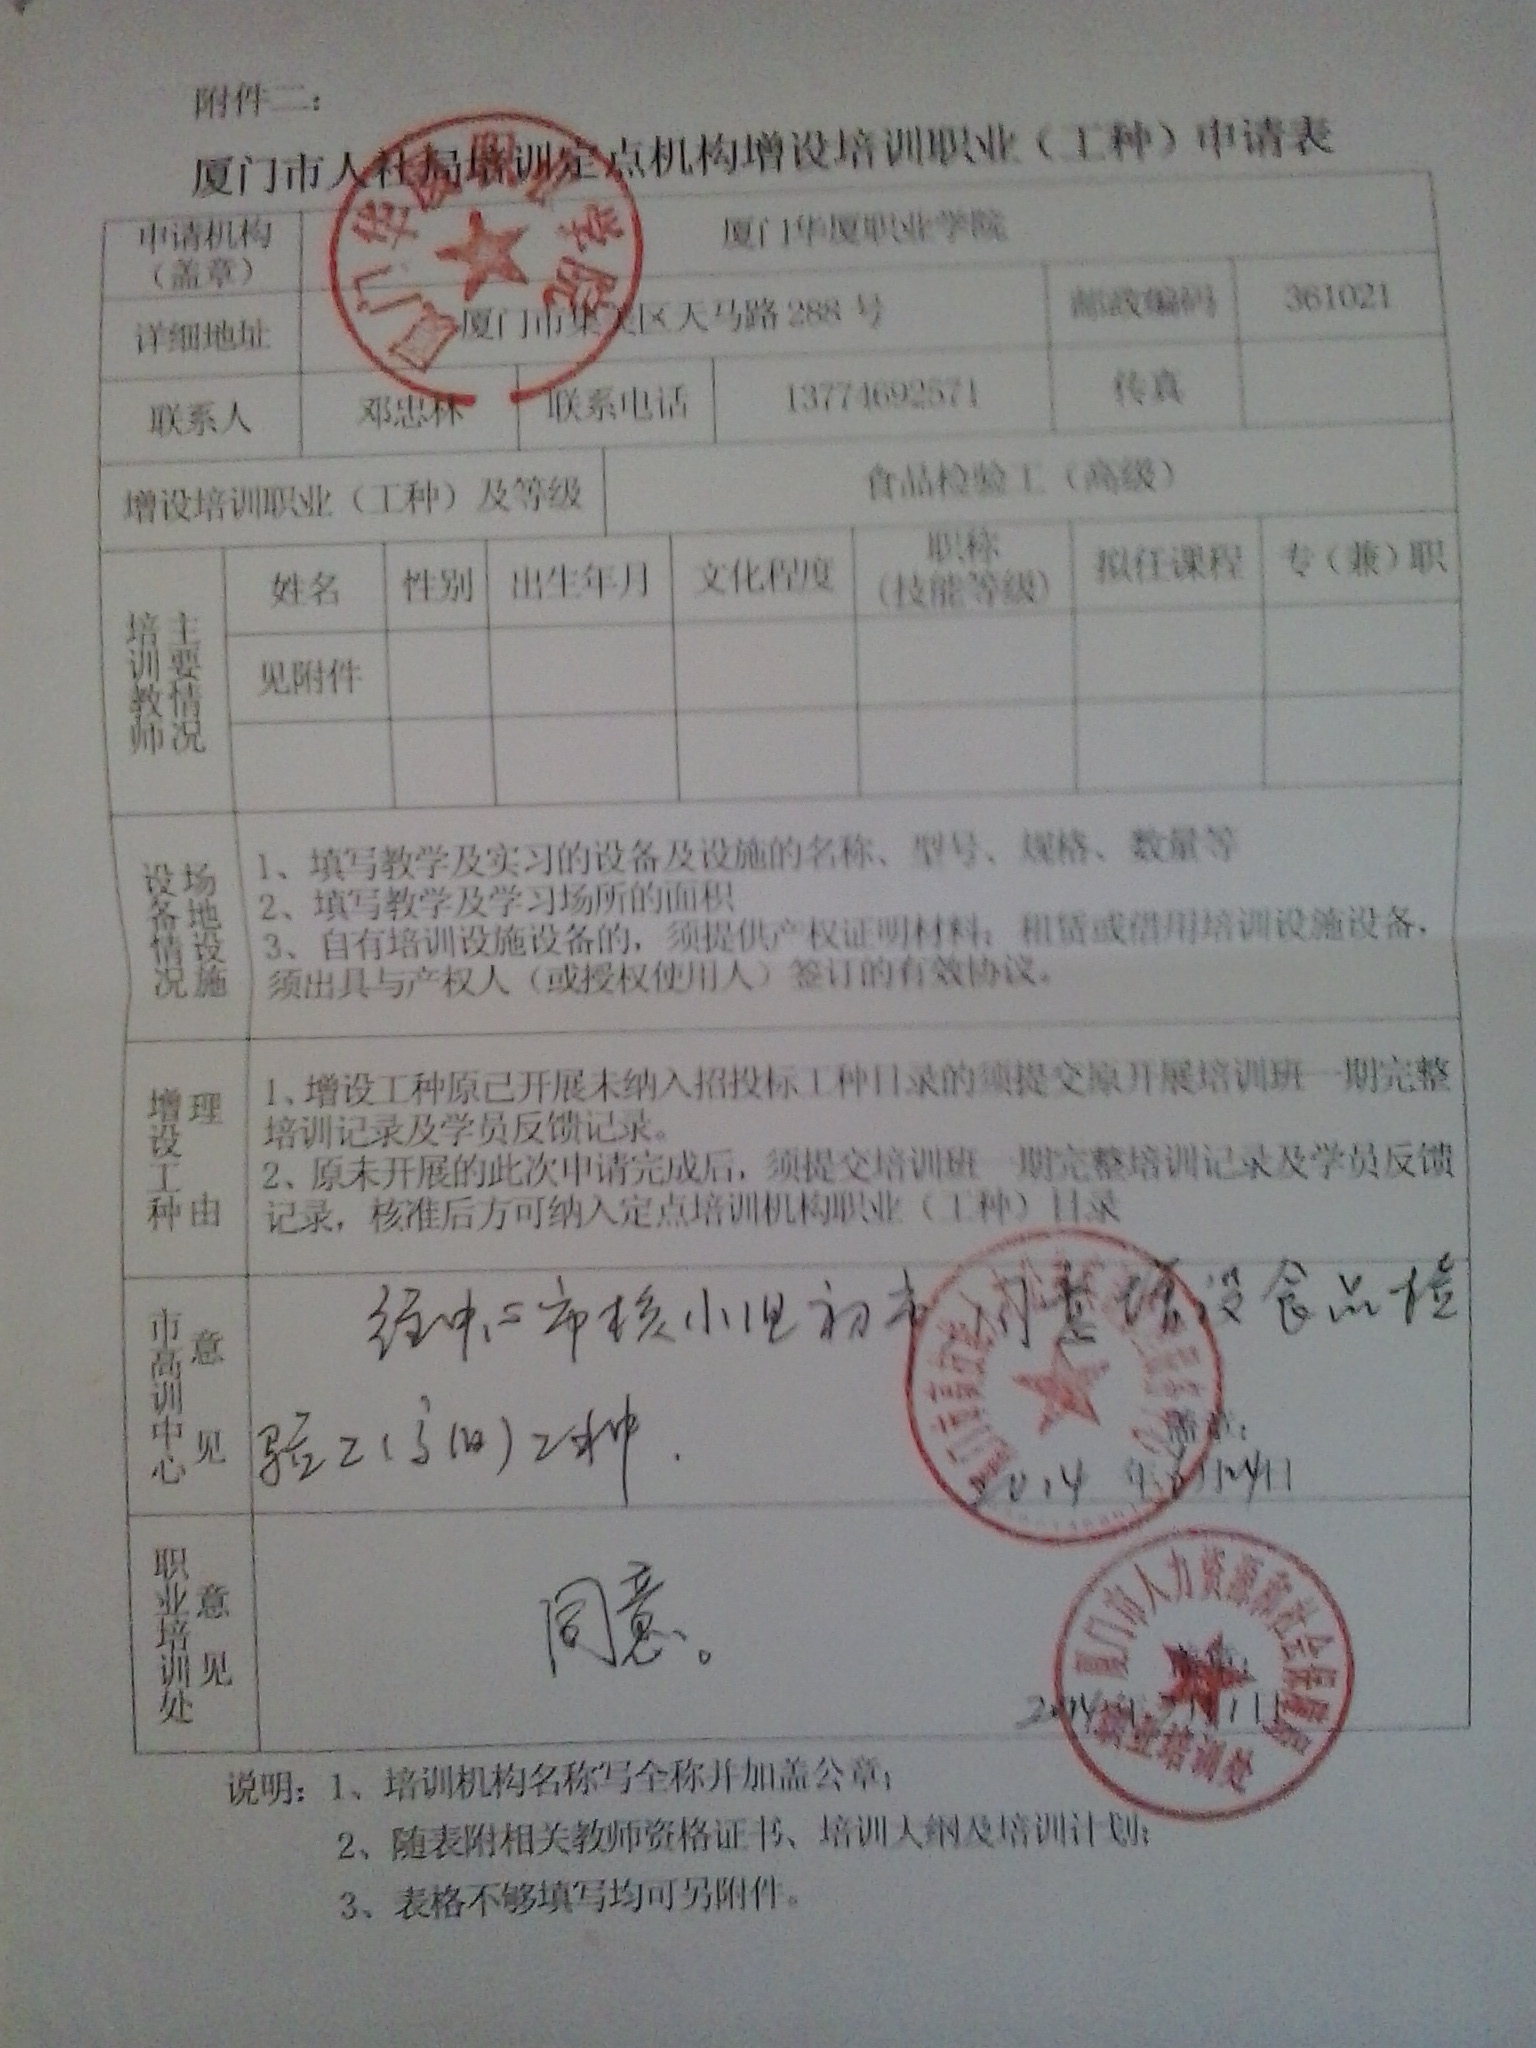 附件二：
厦门市人社局培训定点机构增设培训职业（工种）申请表
申请机构（盖章） 厦门华厦职业学院
详细地址 厦门市集美区天马路 288 号 邮政编码 361021
联系人 邓忠林 联系电话 13774692571 传真
增设培训职业（工种）及等级 食品检验工（高级）
培训教师主要情况
姓名 性别 出生年月 文化程度 职称（技能等级） 拟任课程 专（兼）职
见附件
设备情况场地设施
1、填写教学及实习的设备及设施的名称、型号、规格、数量等
2、填写教学及学习场所的面积
3、自有培训设施设备的，须提供产权证明材料；租赁或借用培训设施设备，
须出具与产权人（或授权使用人）签订的有效协议。
增设工种理由
1、增设工种原已开展未纳入招投标工种目录的须提交原开展培训班一期完整
培训记录及学员反馈记录。
2、原未开展的此次申请完成后，须提交培训班一期完整培训记录及学员反馈
记录，核准后方可纳入定点培训机构职业（工种）目录
市高训中心意见
经中心审核小组初审 同意增设食品检
验工（高级）工种.
盖章：
2014 年
职业培训处意见
同意。
厦门市人力资源和社会保障局
职业培训处
2014年
说明：1、培训机构名称写全称并加盖公章；
2、随表附相关教师资格证书、培训大纲及培训计划；
3、表格不够填写均可另附件。